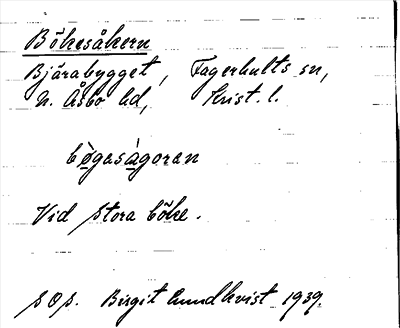 Bökesåkern
Bjärabygget, Fagerhults sn,
N. Åsbo hd, Krist. l.
bøgasågoran
Vid stora böke.
sos. Birgit Lundkvist 1939.